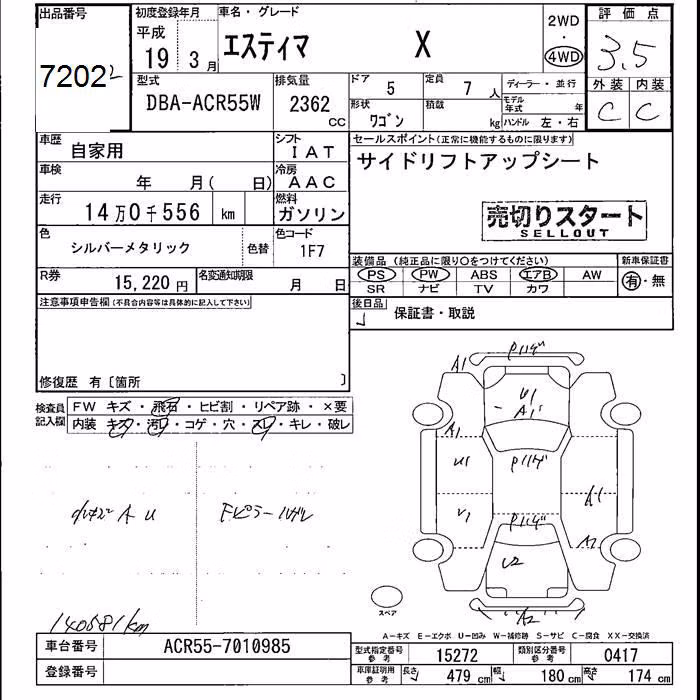 出品番号
72022
初度登録年月
平成
19 3 月
車名・グレード
エスティマ X
2WD
・
4WD
評価点
3.5
外装 内装
C C
型式
DBA-ACR55W
排気量
2362
CC
ドア 5
定員 7 人
ディーラー・並行
形状 ワゴン
積載 kg
モデル年式 年
ハンドル 左・右
車歴
自家用
シフト
IAT
車検
年 月( 日)
冷房
AAC
走行
14万0千556 km
燃料
ガソリン
色
シルバーメタリック
色替
色コード
1F7
R券
15,220 円
名変通知期限
月 日
セールスポイント(正常に機能するものに限ります)
サイドリフトアップシート
売切りスタート
SELLOUT
装備品 (純正品に限り○をつけてください)
新車保証書
PS PW ABS エアB AW
SR ナビ TV カワ
有・無
後日品
保証書・取説
注意事項申告欄(不具合内容等は具体的に記入して下さい)
修復歴 有〔箇所 〕
検査員記入欄
FW キズ・飛石・ヒビ割・リペア跡・×要
内装 キズ・汚レ・コゲ・穴・スレ・キレ・破レ
A U
Fピラーハガレ
140581km
A1
U1
A1
A1
U1
U1
A1
A2
U2
A2
スペア
A-キズ E-エクボ U-凹み W-補修跡 S-サビ C-腐食 XX-交換済
車台番号
ACR55-7010985
登録番号
型式指定番号 参考
15272
類別区分番号 参考
0417
車庫証明用 参考
長さ 479 cm 幅 180 cm 高さ 174 cm